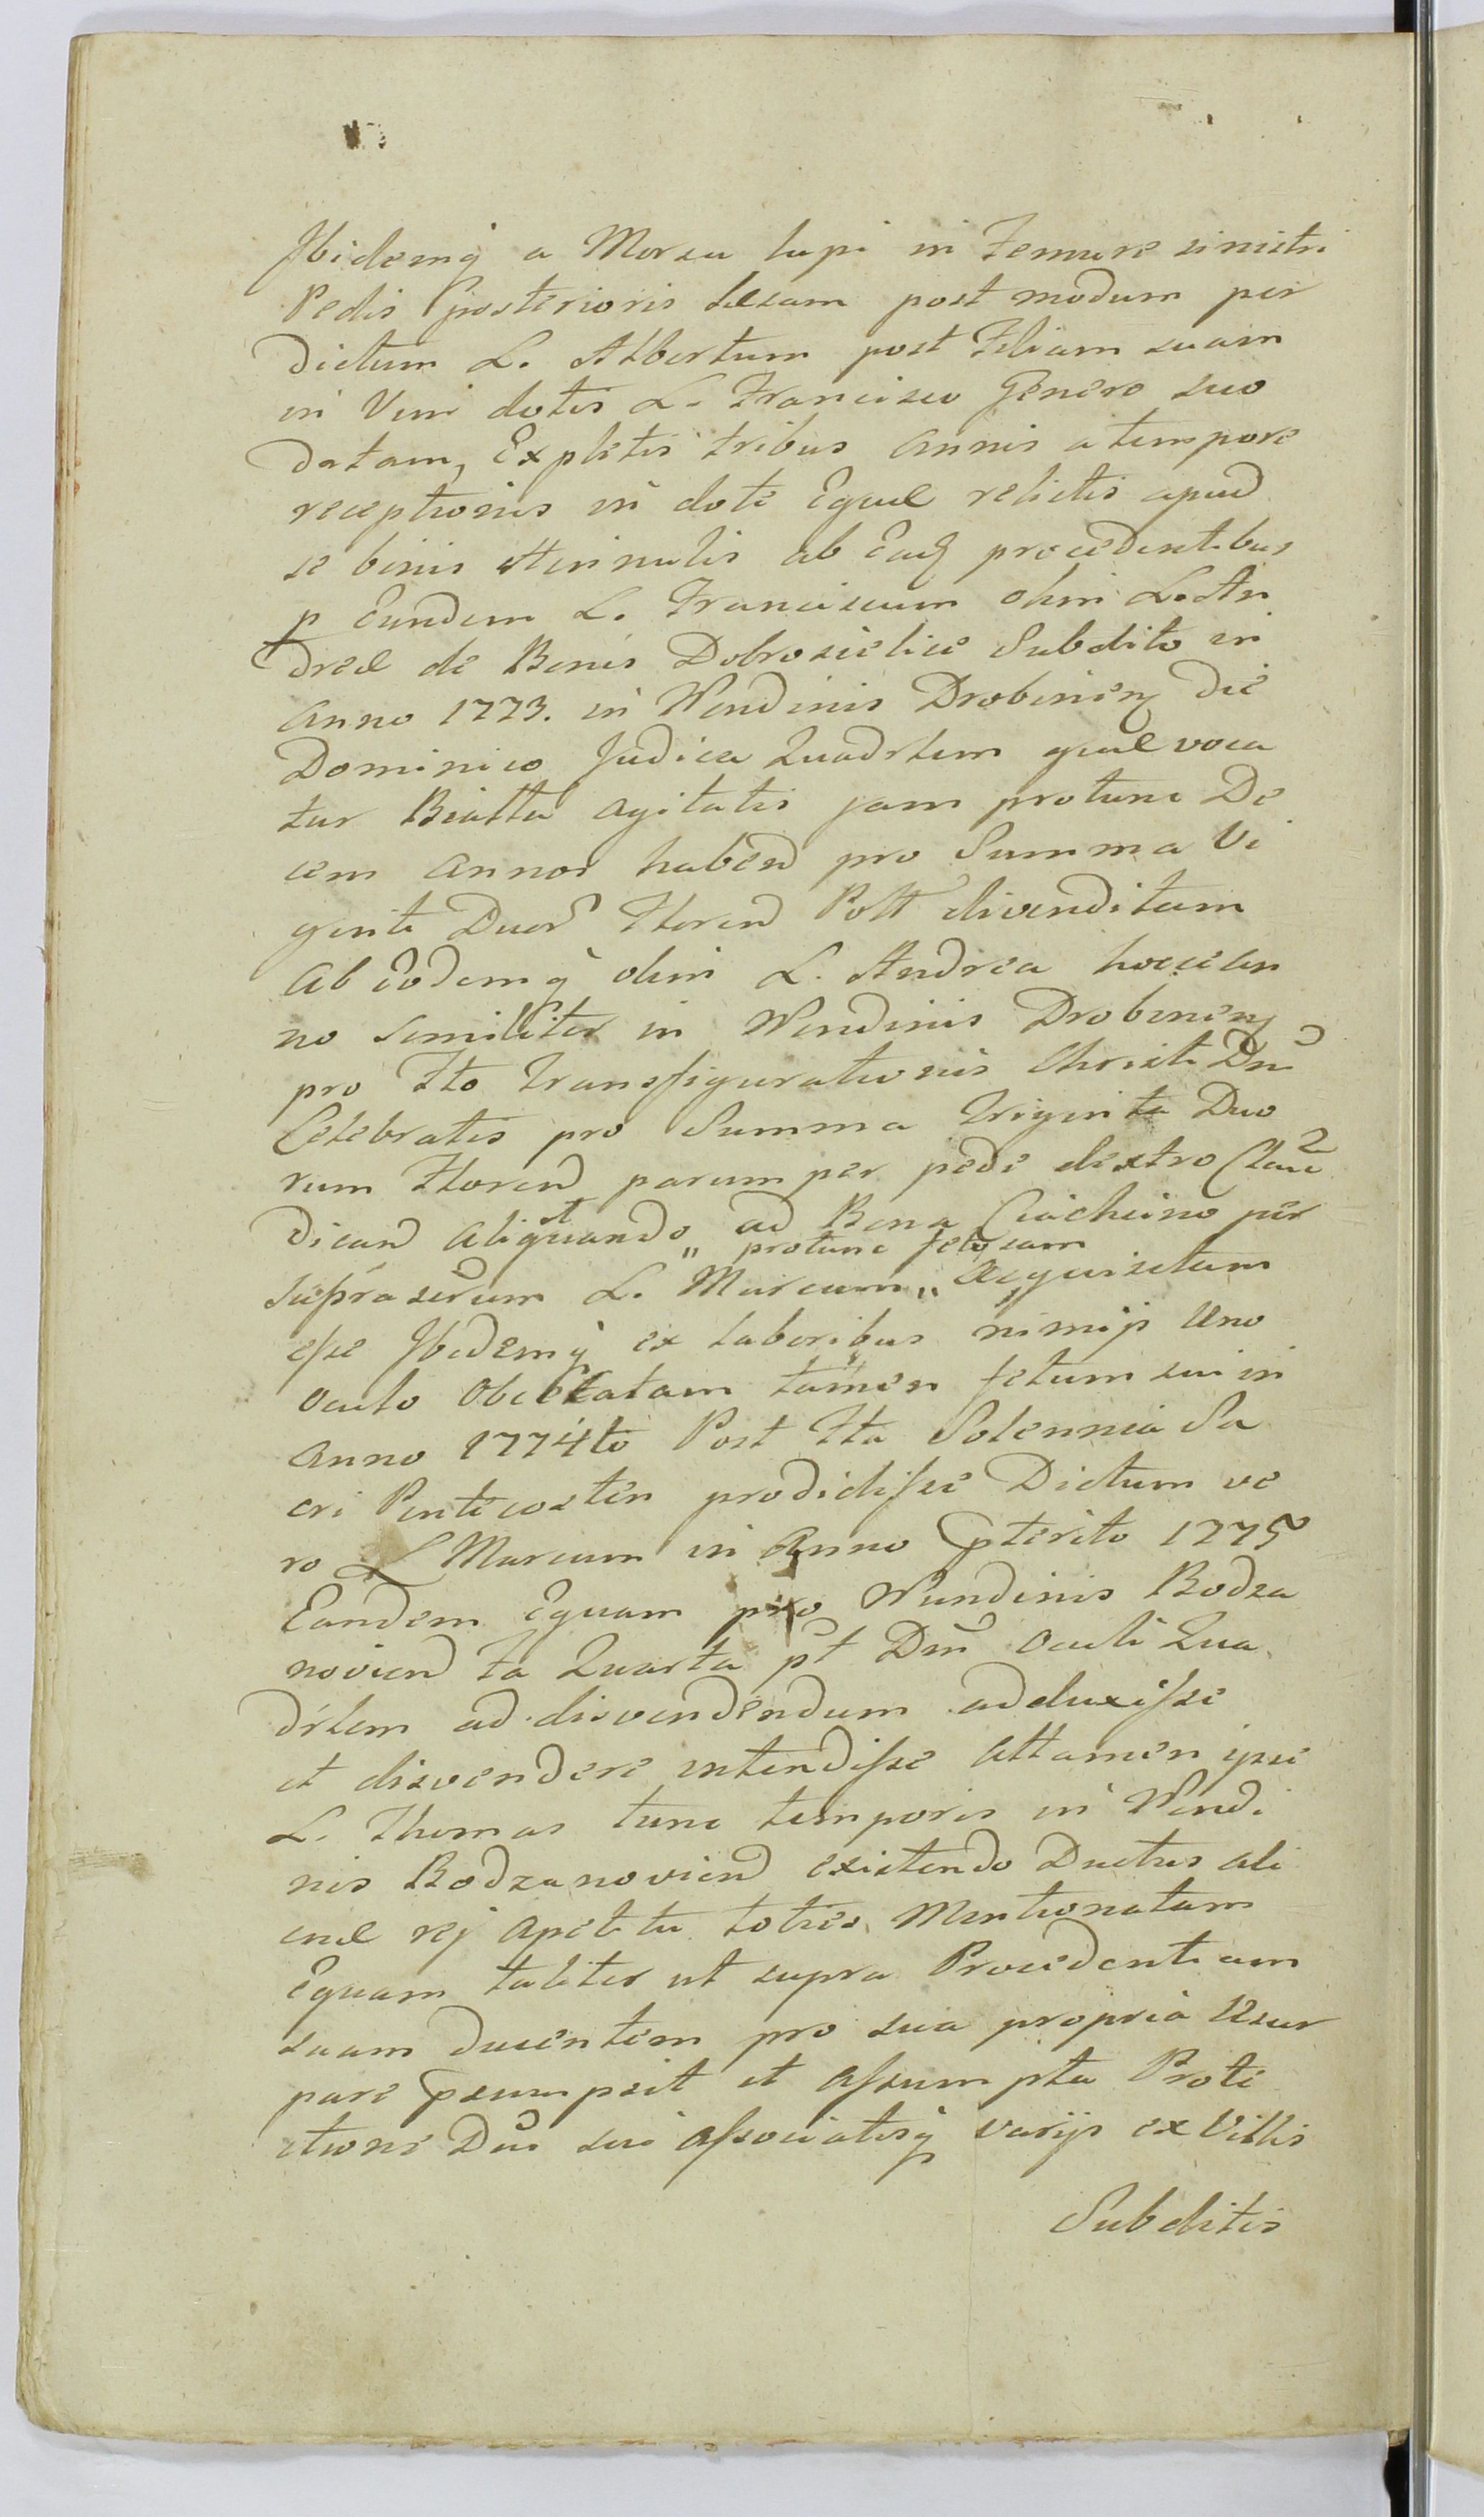 Ibidemq̀ a Morsu lupi in Femure sinistri
Pedis posterioris læsam post modum per
dictum L. Albertum post Filiam suam
in Vim dotis L. Francisco Genero suo
datam, Expletis tribus annis a tempore
receptionis in dote Equæ relictis apud
se binis Hinnulis ab Eadē procedentibus
p Eundem L. Franciscum olim L. An
dreæ de Bonis Dobrosielice Subdito in
Anno 1773. in Nundinis Drobinen̄ die
Dominico Judica Quadrlem quæ voca
tur Biatta agitatis jam protunc De
cem annor haben̄ pro Summa Vi
ginti Duor̄ Floren̄ Poll divenditam
Ab Eodemq̀ olim L. Andrea hocce an
no similiter in Nundinis Drobinen̄
pro Fto Transfigurationis Christi Dni
Celebratis pro Summa Triginta Duo
rum Floren̄ parumper pede dextro Clau
dican̄ aliquando ad Bona Ciacheino per
protunc fetosam
supra scrum L. Marcum „ acquisitam
esse Ibidemq̀ ex laboribus nimijs Uno
oculo Obcecatam tamen fetum sui in
Anno 1774to Post Fta Solennia Sa
cri Pentecosten prodidisse Dictum ve
ro L Marcum in Anno pterito 1775
Eandem Equam pro Nundinis Bodza
novien̄ fa Quarta pt Dm̄ Oculi Qua
drlem ad divendendum adduxisse
et disvendere intendisse attamen ipse
L. Thomas tunc temporis in Nundi
nis Bodzanovien̄ existendo Ductus ali
enæ rej apetitu toties Mentionatam
Equam taliter ut supra Procedentiam
suam ducentem pro sua propria Usur
pare psumpsit et assumpta Prote
ctione Dn̄i sui associatisq̀ varijs ex Villis
Subditis